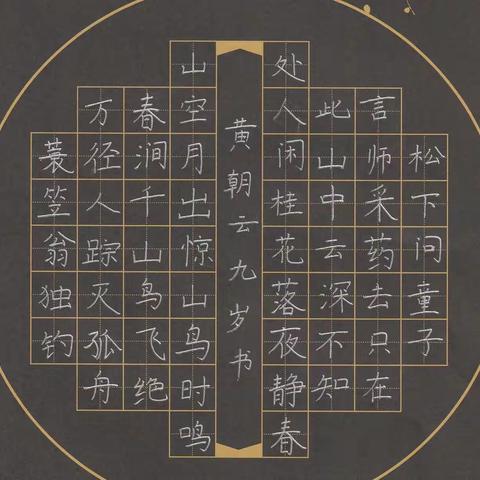 松下问童子
言师采药去只在
此山中云深不知
处人闲桂花落夜静春
黄朝云九岁书
山空月出惊山鸟时鸣
春涧千山鸟飞绝
万径人踪灭孤舟
蓑笠翁独钓